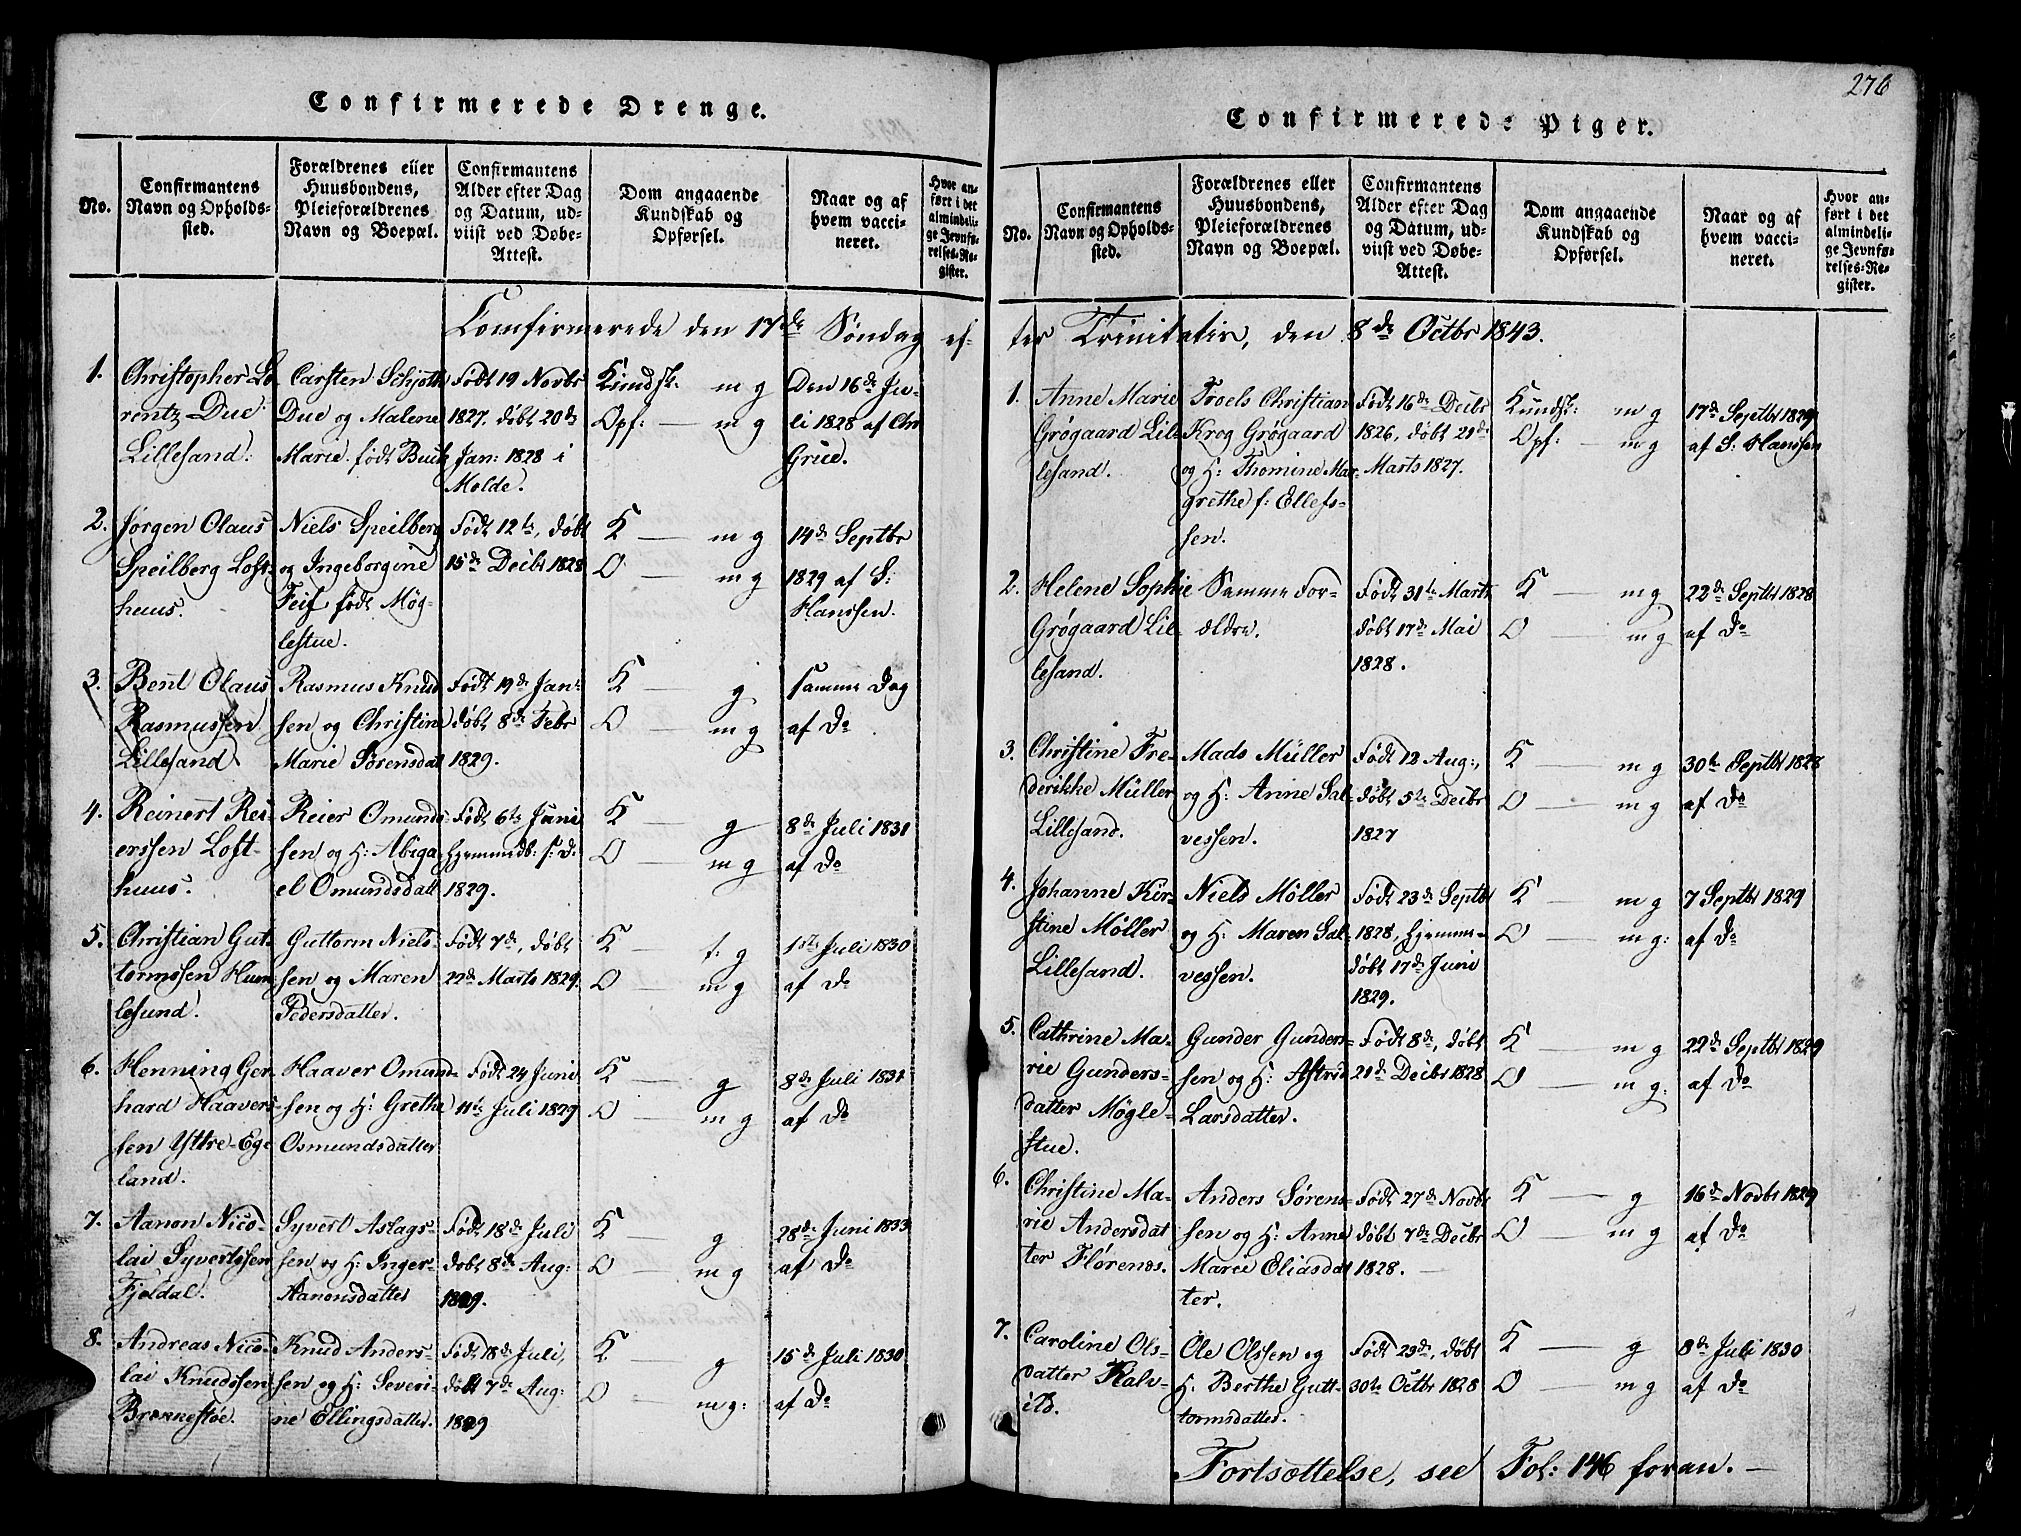 Confirmerede Drenge.
No.
Confirmantens
Navn og Opholds-
sted.
Forældrenes eller
Huusbondens,
Pleieforældrenes
Navn og Boepæl.
Confirmantens
Alder efter Dag
og Datum, ud-
viist ved Døbe-
Attest.
Dom angaaende
Kundskab og
Opførsel.
Naar og af
hvem vacci-
neret.
Hvor an-
ført i det
almindeli-
ge Jevnfø-
relses-Re-
gister.
Comfirmerede den 17de Søndag ef-
1.
Christopher Lo-
rentz Due.
Lillesand.
Carsten Schjøth
Due og Malene
Marie født Buch
Født 19 Novbr
1827. døbt 20de
Jan: 1828 i
Molde.
Kundsk. m g
Opf: — m g
Den 16de Ju-
li 1828 af Chr
Grue.
2.
Jørgen Olaus
Speilberg Loft-
huus.
Niels Speilberg
og Ingeborgine
Feif født Møg-
lestue.
Født 12te, døbt
15de Decbr 1828
K — m g
O — m g
14de Septbr
1829 af S:
Hanssen.
3.
Bent Olaus
Rasmussen
Lillesand
Rasmus Knud
sen og Christine
Marie Sørensdat
Født 19de Jan:
døbt 8de Febr
1829.
K — g
O — m g
samme Dag
af Do
4.
Reinert Rei-
erssen Loft-
huus.
Reier Omunds-
sen og H: Abiga-
el Omundsdatt
Født 6te Juni
hjemmedb: s: d.
1829.
K — g
O — m g
8de Juli 1831
af Do
5.
Christian Gut-
tormssen Hum-
lesund.
Guttorm Niels-
sen og Maren
Pedersdatter.
Født 7de, døbt
22de Marts 1829.
K — t. g
O — m g
1ste Juli 1830
af Do
6.
Henning Ger-
hard Haavers-
sen Yttre-Ege
land.
Haaver Omund-
sen og H: Grethe
Osmundsdatter
Født 24 Juni
11te Juli 1829
K — g
O — m g
8de Juli 1831
af Do
7.
Aanon Nico-
lai Syvertssen
Fjeldal.
Syvert Aslags-
sen og H: Inger
Aanonsdatter
Født 18de Juli
døbt 8de Aug:
1829.
K — g
O — m g
28de Juni 1833
af Do
8.
Andreas Nico-
lai Knudssen
Brønnestøe.
Knud Anders-
sen og H: Severi-
ne Ellingsdatter.
Født 18de Juli,
døbt 7de Aug:
1829
K. — g
O — m g:
15de Juli 1830
af Do
276
Confirmerede Piger.
No.
Confirmantens
Navn og Opholds-
sted.
Forældrenes eller
Huusbondens,
Pleieforældrenes
Navn og Boepæl.
Confirmantens
Alder efter Dag
og Datum, ud-
viist ved Døbe-
Attest.
Dom angaaende
Kundskab og
Opførsel.
Naar og af
hvem vacci-
neret.
Hvor an-
ført i det
almindeli-
ge Jevnfø-
relses-Re-
gister.
ter Trinitatis, den 8de Octbr 1843.
1.
Anne Marie
Grøgaard Lil-
lesand.
Troels Christian
Krog Grøgaard
og H: Thomine Mar-
grethe f: Ellefs-
sen.
Født 16de Decbr
1826, døbt 21de
Marts 1827.
Kundsk: m g
Opf: — m g
17de Septbr 1829
af S: Hanssen
2.
Helene Sophie
Grøgaard Lil-
lesand.
Samme For-
ældre.
Født 31te Marts
døbt 17de Mai
1828.
K — m g
O — m g
22de Septbr 1828
af Do
3.
Christine Fre-
derikke Müller
Lillesand.
Mads Müller
og H: Anne Sal-
vessen.
Født 12 Aug:,
døbt 5te Decbr
1827
K — m g
O — m g
30te Septbr 1828
af Do
4.
Johanne Kir-
stine Møller
Lillesand.
Niels Møller
og H: Maren Sal-
vessen.
Født 23de Septbr
1828, hjemme-
døbt 17de Juni
1829.
K — m g
O — m g:
7 Septbr 1829
af Do
5.
Cathrine Ma-
rie Gunders-
datter Møgle-
stue.
Gunder Gunders-
sen og H: Astrid
Larsdatter.
Født 8de, døbt
21de Decbr 1828
K — m g
O — m g:
22de Septbr 1829
af Do
6.
Christine Ma-
rie Andersdat
ter Flørenes.
Anders Sørens-
sen og H: Anne
Marie Eliasdat
ter.
Født 27de Novbr
døbt 7de Decbr
1828. —
K — g
O — m g
16de Novbr 1829
af Do
7.
Caroline Ols-
datter Kalv-
ild.
Ole Olssen og
H: Berthe Gutt-
tormsdatter.
Født 23de, døbt
30te Octbr 1828
K — g
O — m g
8de Juli 1830
af Do
Fortsættelse, see Fol: 146 foran. —